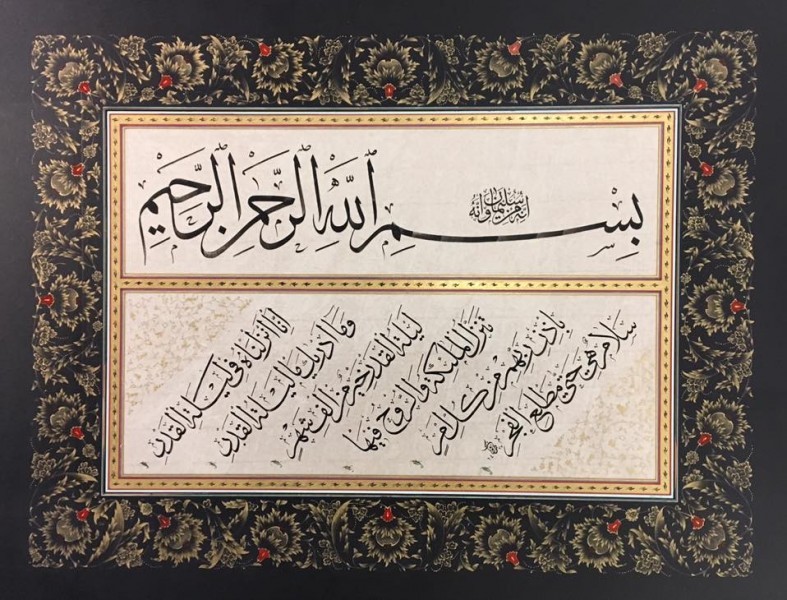 إنه من سليمان وإنه
بِسْمِ اللهِ الرَّحْمٰنِ الرَّحِيمِ
إنا أنزلناه في ليلة القدر
وما أدريك ما ليلة القدر
ليلة القدر خير من ألف شهر
تنزل الملئكة والروح فيها
بإذن ربهم من كل أمر
سلام هي حتى مطلع الفجر